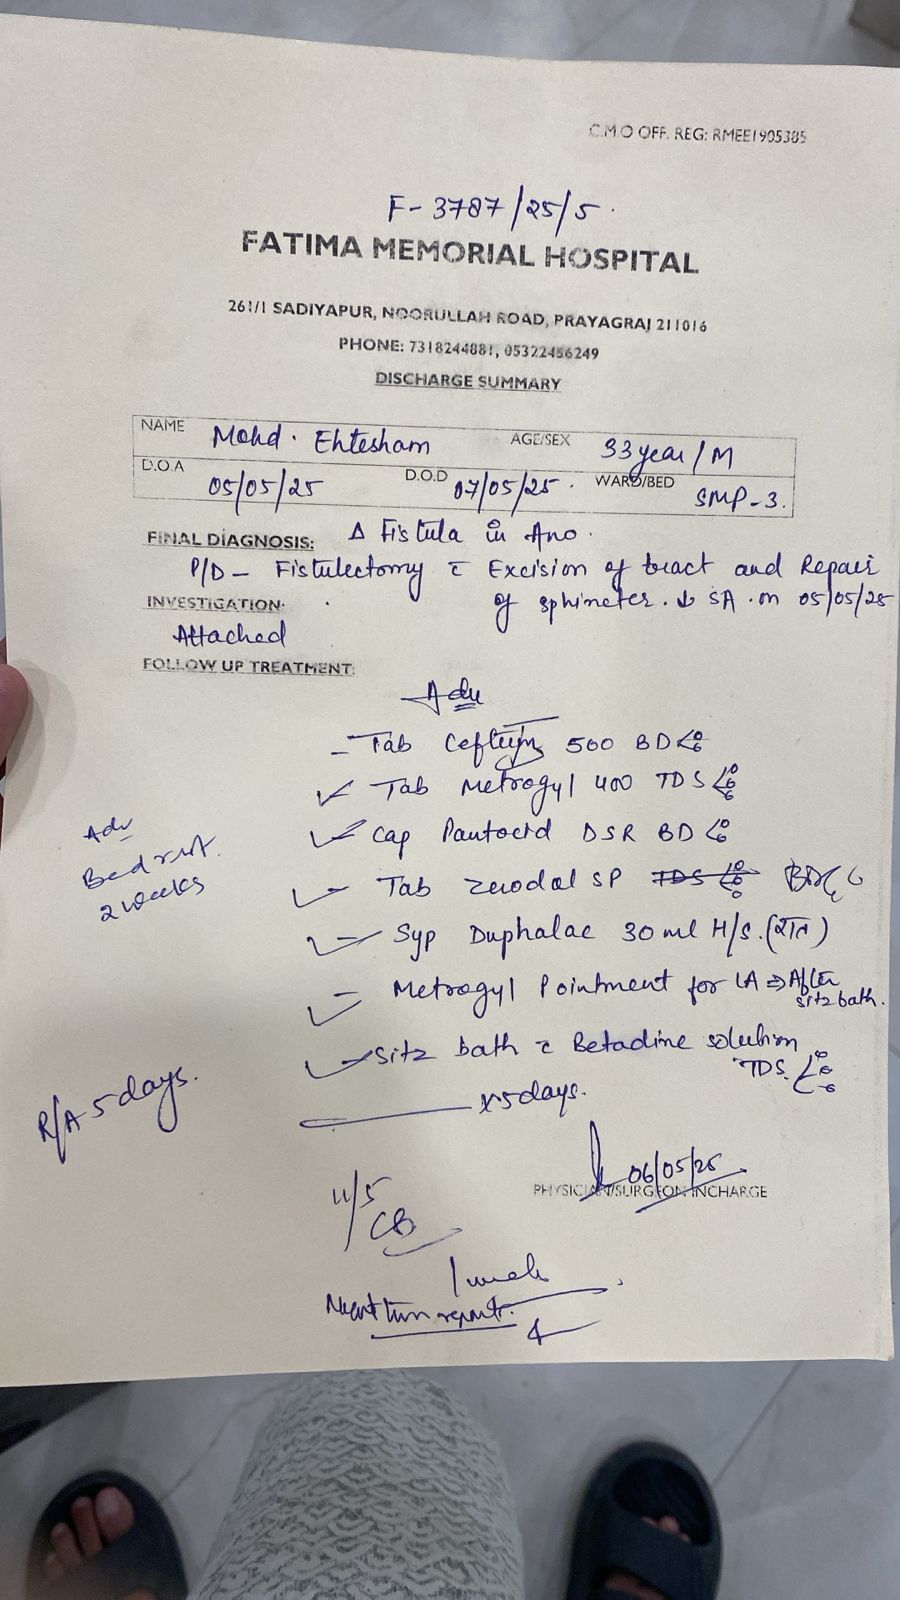 C.M.O OFF. REG: RMEE1905385
F-3787/25/5.
FATIMA MEMORIAL HOSPITAL
261/1 SADIYAPUR, NOORULLAH ROAD, PRAYAGRAJ 211016
PHONE: 7318244881, 05322456249
DISCHARGE SUMMARY
NAME Mohd. Ehtesham AGE/SEX 33 year/M
D.O.A 05/05/25 D.O.D 07/05/25. WARD/BED SMP-3.
FINAL DIAGNOSIS: Δ Fistula in Ano.
P/D – Fistulectomy c̄ Excision of tract and Repair
of sphincter. ↓ SA. on 05/05/25
INVESTIGATION:
Attached
FOLLOW UP TREATMENT:
Adv
- Tab Ceftum 500 BD
✓ Tab Metrogyl 400 TDS
✓ Cap Pantocid DSR BD
✓ Tab Zerodol SP TDS BD
✓ Syp Duphalac 30 ml H/S. (रात)
✓ Metrogyl P ointment for LA ⇒ After
sitz bath.
✓ Sitz bath c̄ Betadine solution
TDS.
x 5 days.
Adv
Bed rest.
2 weeks
R/A 5 days.
06/05/25
PHYSICIAN/SURGEON INCHARGE
11/5
1 week